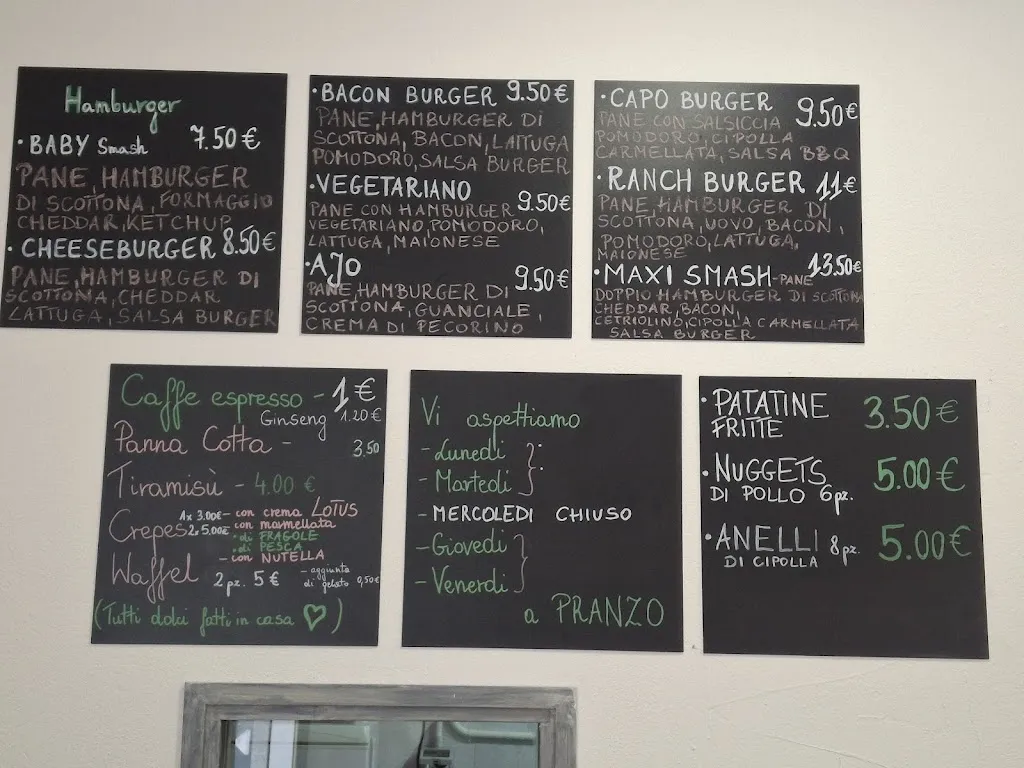 Hamburger
• BABY Smash 7.50 €
PANE, HAMBURGER
DI SCOTTONA, FORMAGGIO
CHEDDAR, KETCHUP
• CHEESEBURGER 8.50 €
PANE, HAMBURGER DI
SCOTTONA, CHEDDAR
LATTUGA, SALSA BURGER
• BACON BURGER 9.50 €
PANE, HAMBURGER DI
SCOTTONA, BACON, LATTUGA
POMODORO, SALSA BURGER
• VEGETARIANO 9.50 €
PANE CON HAMBURGER
VEGETARIANO, POMODORO,
LATTUGA, MAIONESE
• AJO 9.50 €
PANE, HAMBURGER DI
SCOTTONA, GUANCIALE,
CREMA DI PECORINO
• CAPO BURGER 9.50 €
PANE CON SALSICCIA
POMODORO, CIPOLLA
CARMELLATA, SALSA BBQ
• RANCH BURGER 11 €
PANE HAMBURGER DI
SCOTTONA, UOVO, BACON,
POMODORO, LATTUGA,
MAIONESE
• MAXI SMASH - PANE 13.50 €
DOPPIO HAMBURGER DI SCOTTONA
CHEDDAR, BACON,
CETRIOLINO, CIPOLLA CARMELLATA
SALSA BURGER
Caffe espresso - 1 €
Ginseng 1.20 €
Panna Cotta - 3,50
Tiramisù - 4.00 €
Crepes 1x 3.00€ - con crema LOTUS
2x 5.00€ - con marmellata
• di FRAGOLE
• di PESCA
- con NUTELLA
Waffel 2 pz. 5 € - aggiunta
di gelato 0,50€
(Tutti dolci fatti in casa ♡)
Vi aspettiamo
- Lunedi
- Martedi
- MERCOLEDI CHIUSO
- Giovedi
- Venerdi
a PRANZO
• PATATINE 3.50 €
FRITTE
• NUGGETS 5.00 €
DI POLLO 6 pz.
• ANELLI 8 pz. 5.00 €
DI CIPOLLA